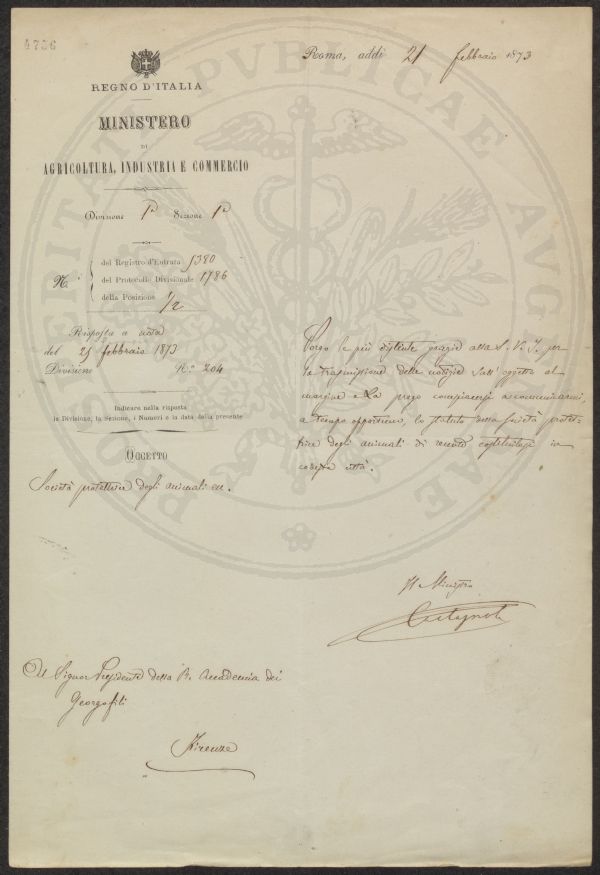 4736
Roma, addì 21 febbraio 1873
REGNO D'ITALIA
MINISTERO
DI
AGRICOLTURA, INDUSTRIA E COMMERCIO
Divisione Pa Sezione Pa
N.i
del Registro d'Entrata 5380
del Protocollo Divisionale 1786
della Posizione 1/2
Risposta a nota
del 25 febbraio 1873
Divisione N.o 204
Indicare nella risposta
la Divisione, la Sezione, i Numeri e la data della presente
OGGETTO
Società protettrice degli animali
Porgo le più distinte grazie alla S. V. I. per
la trasmissione delle notizie sull'oggetto al
margine e La prego compiacersi a comunicarmi,
a tempo opportuno, lo statuto della Società protet-
trice degli animali di recente costituitasi in
codesta città.
Il Ministro
Castagnola
Al Signor Presidente della R. Accademia dei
Georgofili
Firenze
PVBLICAE
PROSPERITATI
AVGENDAE